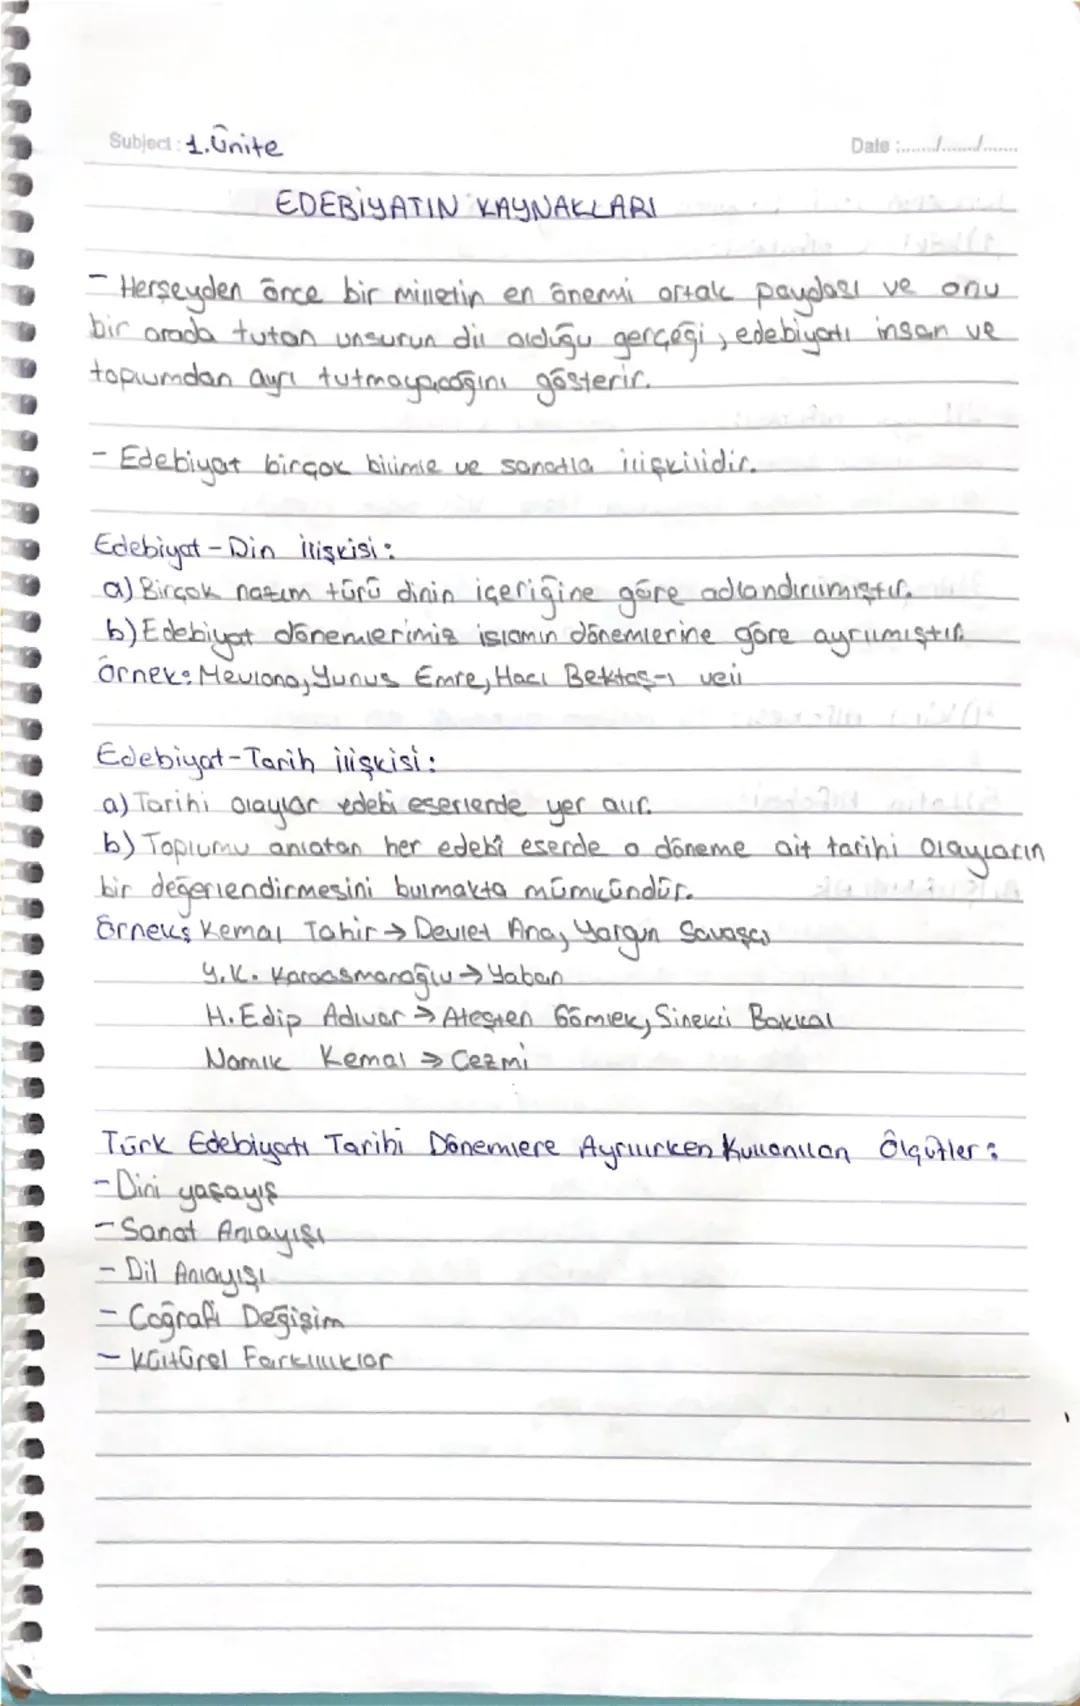 Subject : 1.Ünite
Date :....../....../......
EDEBİYATIN KAYNAKLARI
- Herşeyden önce bir milletin en önemli ortak paydası ve onu
bir arada tutan unsurun dil olduğu gerçeği, edebiyatı insan ve
toplumdan ayrı tutmayacağını gösterir.
- Edebiyat birçok bilimle ve sanatla ilişkilidir.
Edebiyat - Din ilişkisi :
a) Birçok nazım türü dinin içeriğine göre adlandırılmıştır.
b) Edebiyat dönemlerimiz islamın dönemlerine göre ayrılmıştır.
Örnek: Mevlana, Yunus Emre, Hacı Bektaş-ı veli
Edebiyat-Tarih ilişkisi :
a) Tarihi olaylar edebi eserlerde yer alır.
b) Toplumu anlatan her edebî eserde o döneme ait tarihi olayların
bir değerlendirmesini bulmakta mümkündür.
Örnek: Kemal Tahir → Devlet Ana, Yorgun Savaşçı
Y.K. Karaosmanoğlu → Yaban
H.Edip Adıvar → Ateşten Gömlek, Sinekli Bakkal
Namık Kemal → Cezmi
Türk Edebiyatı Tarihi Dönemlere Ayrılırken Kullanılan Ölçütler :
- Dini yaşayış
- Sanat Anlayışı
- Dil Anlayışı
- Coğrafi Değişim
- Kültürel Farklılıklar